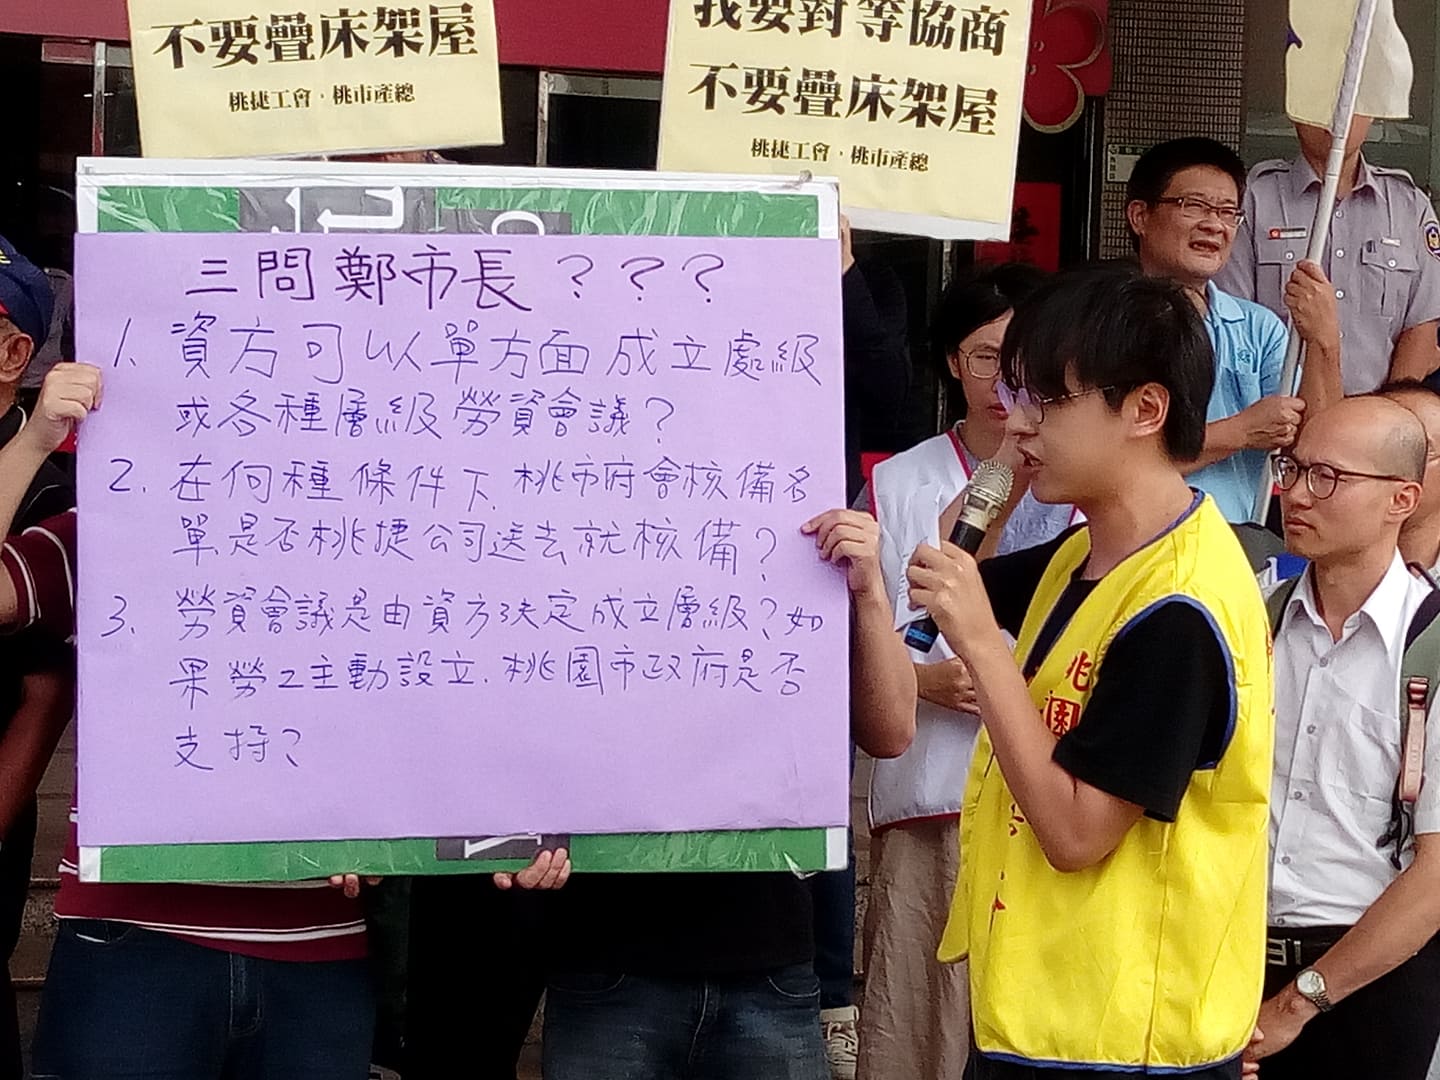 不要疊床架屋
桃捷工會，桃市產總
我要對等協商
不要疊床架屋
桃捷工會，桃市產總
三問鄭市長？？？
1. 資方可以單方面成立處級
或各種層級勞資會議？
2. 在何種條件下.桃市府會核備名
單是否桃捷公司送去就核備？
3. 勞資會議是由資方決定成立層級？如
果勞工主動設立.桃園市政府是否
支持？
桃
園